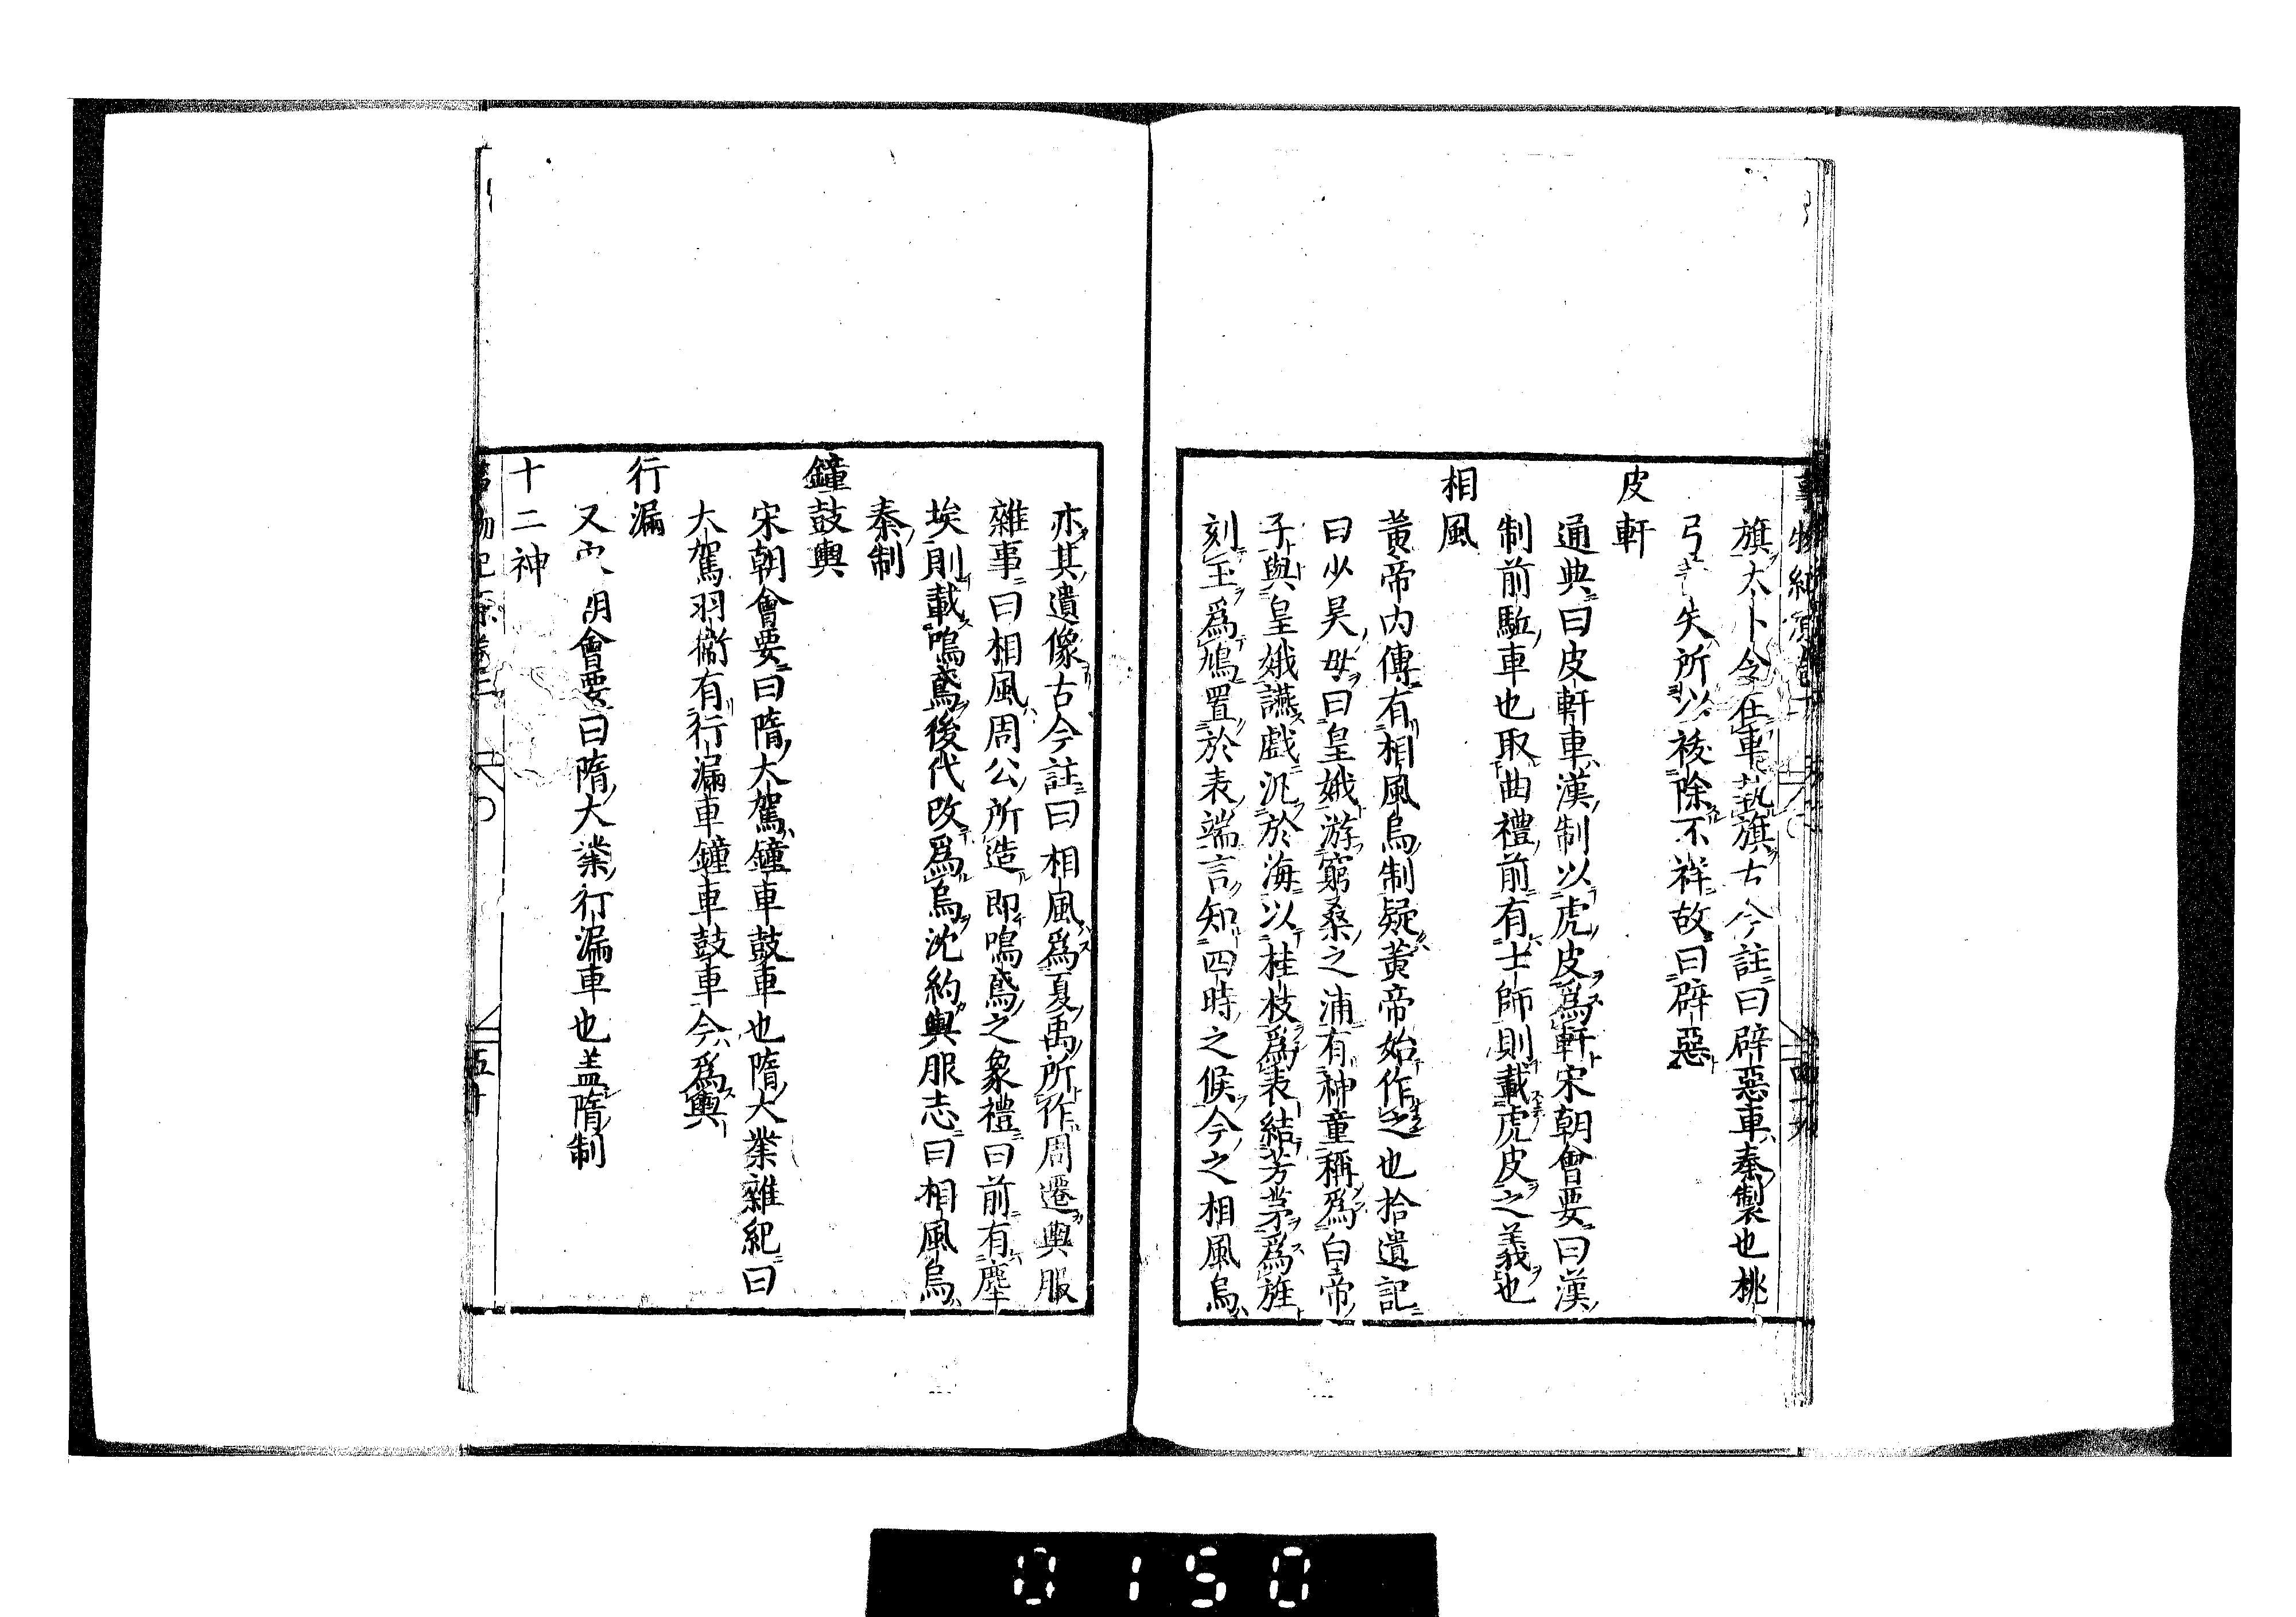 旗太卜令在車執旗古今註曰辟惡車秦製也桃
弓 矢所以祓除不祥故曰辟惡
皮軒
通典曰皮軒車漢制以虎皮爲軒宋朝會要曰漢
制前駈車也取曲禮前有士師則載虎皮之義也
相風
黃帝內傳有相風烏制疑黃帝始作之也拾遺記
曰少昊母曰皇娥游窮桑之浦有神童稱爲白帝
子與皇娥讌戲泛於海以桂枝爲表結芳茅爲旌
刻玉爲鳩置於表端言知四時之候今之相風烏
亦其遺像古今註曰相風爲夏禹所作周遷輿服
雜事曰相風周公所造即鳴鳶之象禮曰前有塵
埃則載鳴鳶後代改爲烏沈約輿服志曰相風烏
秦制
鐘鼓輿
宋朝會要曰隋大駕鐘車鼓車也隋大業雜紀曰
大駕羽衛有行漏車鐘車鼓車今爲輿
行漏
又 會要曰隋大業行漏車也盖隋制
十二神
五十
0150